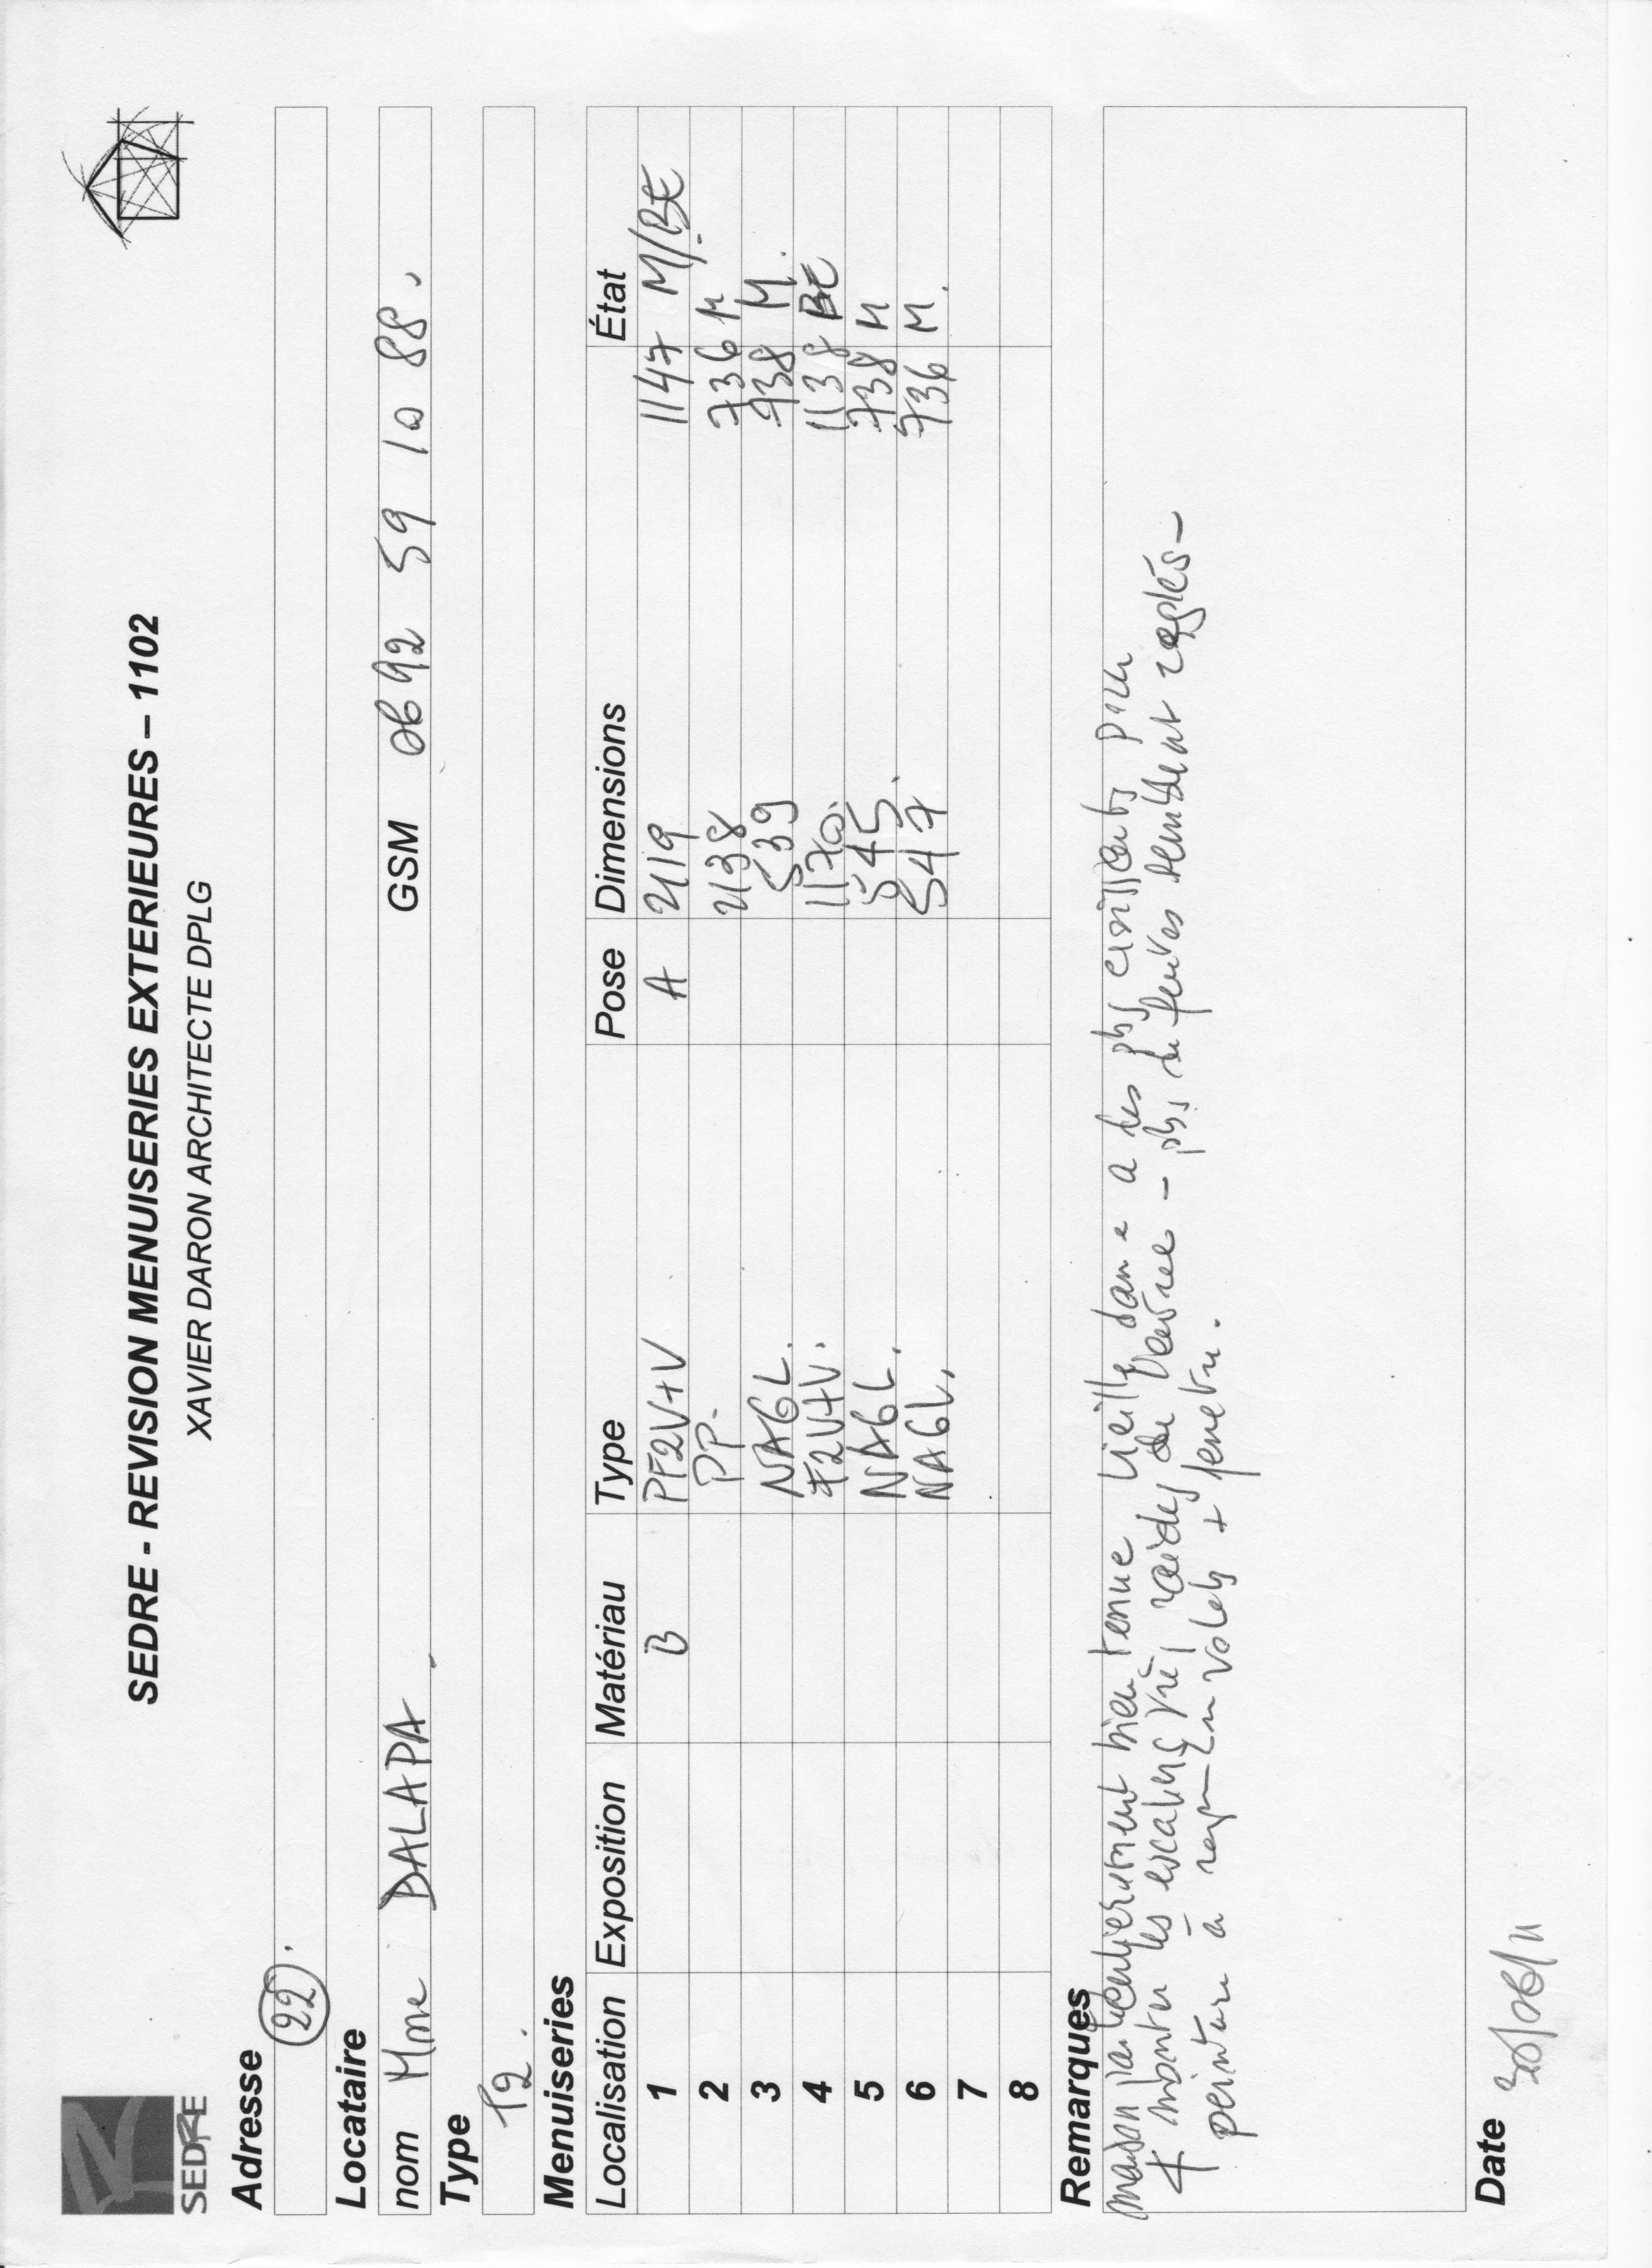 SEDRE
SEDRE - REVISION MENUISERIES EXTERIEURES – 1102
XAVIER DARON ARCHITECTE DPLG
Adresse
22.
Locataire
nom Mme DALAPA. GSM 0692 59 10 88.
Type
T2.
Menuiseries
Localisation Exposition Matériau Type Pose Dimensions État
1 B PF2V+V A 2119 1147 M/BE
2 PP. 2138 736 M
3 NAGL. 539 938 M.
4 F2V+V. 1170. 1138 BE
5 NAGL. 545. 738 M
6 NAGL. 547 736 M.
7
8
Remarques
maison particulièrement bien tenue vieille dame a des pbs croissants pour
+ monter les escaliers très raides de Varree - pbs de fentes semblent réglés -
peinture à volets + fenetre.
Date 30/06/11